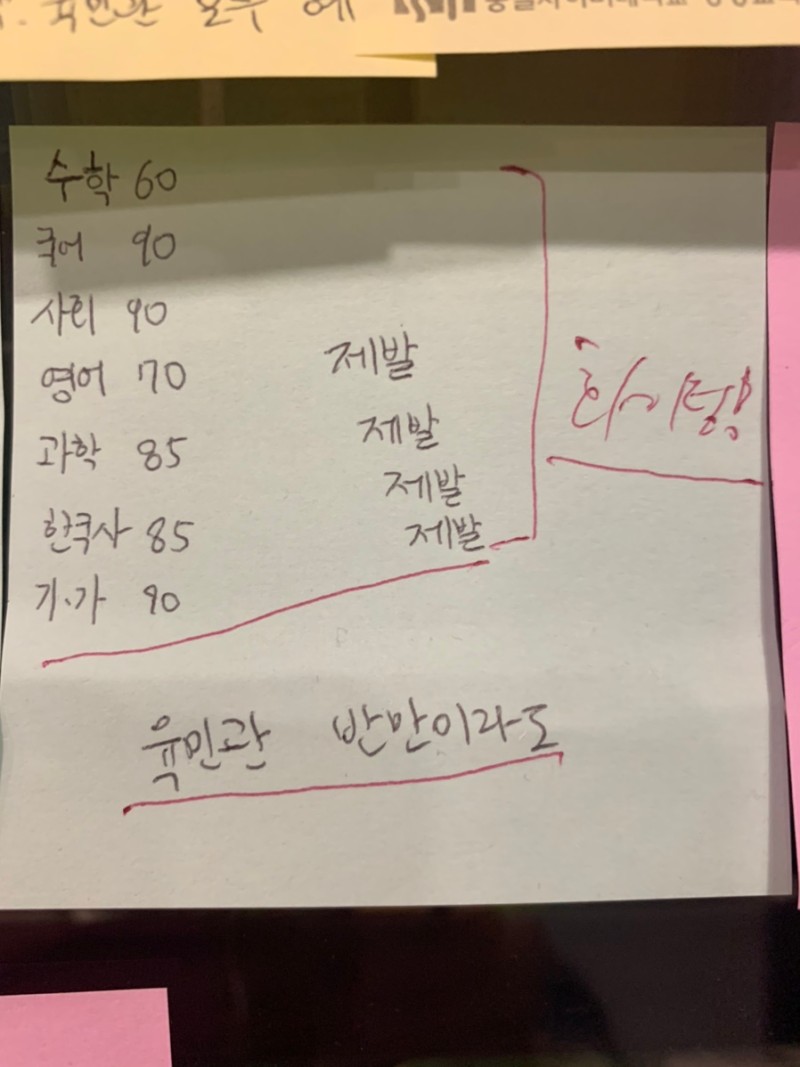 육민관 모두
수학 60
국어 90
사회 90
영어 70 제발
과학 85 제발
제발
한국사 85 제발
기.가 90
화이팅!
육민관 반만이라도